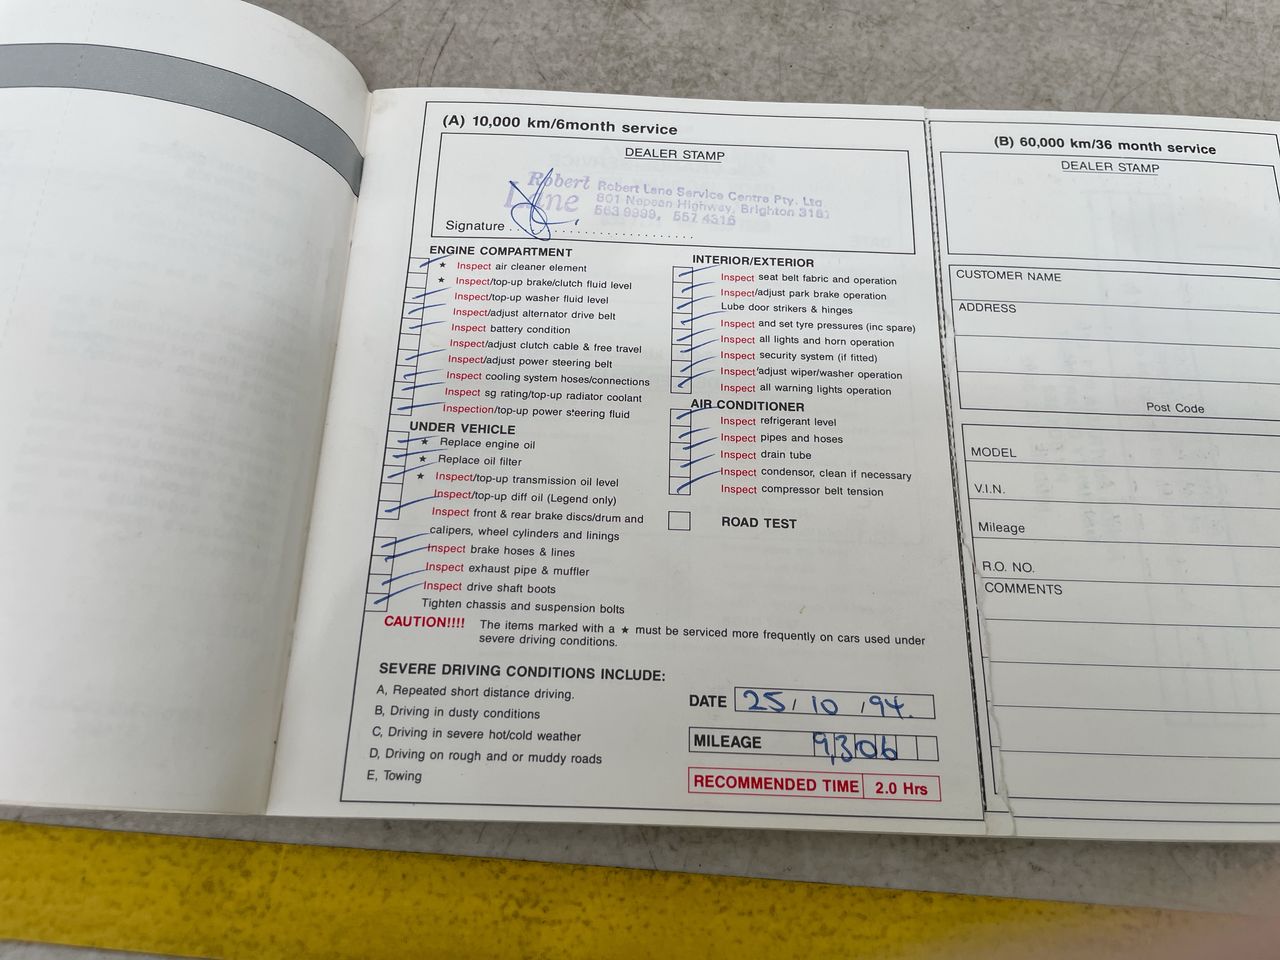 (A) 10,000 km/6month service
DEALER STAMP
Robert Lane
Robert Lane Service Centre Pty. Ltd
801 Nepean Highway, Brighton 3187
563 9999, 557 4316
Signature
ENGINE COMPARTMENT
★ Inspect air cleaner element
★ Inspect/top-up brake/clutch fluid level
Inspect/top-up washer fluid level
Inspect/adjust alternator drive belt
Inspect battery condition
Inspect/adjust clutch cable & free travel
Inspect/adjust power steering belt
Inspect cooling system hoses/connections
Inspect sg rating/top-up radiator coolant
Inspection/top-up power steering fluid
UNDER VEHICLE
★ Replace engine oil
★ Replace oil filter
★ Inspect/top-up transmission oil level
Inspect/top-up diff oil (Legend only)
Inspect front & rear brake discs/drum and
calipers, wheel cylinders and linings
Inspect brake hoses & lines
Inspect exhaust pipe & muffler
Inspect drive shaft boots
Tighten chassis and suspension bolts
INTERIOR/EXTERIOR
Inspect seat belt fabric and operation
Inspect/adjust park brake operation
Lube door strikers & hinges
Inspect and set tyre pressures (inc spare)
Inspect all lights and horn operation
Inspect security system (if fitted)
Inspect/adjust wiper/washer operation
Inspect all warning lights operation
AIR CONDITIONER
Inspect refrigerant level
Inspect pipes and hoses
Inspect drain tube
Inspect condensor, clean if necessary
Inspect compressor belt tension
ROAD TEST
CAUTION!!!! The items marked with a ★ must be serviced more frequently on cars used under
severe driving conditions.
SEVERE DRIVING CONDITIONS INCLUDE:
A, Repeated short distance driving.
B, Driving in dusty conditions
C, Driving in severe hot/cold weather
D, Driving on rough and or muddy roads
E, Towing
DATE 25/10/94.
MILEAGE 9306
RECOMMENDED TIME 2.0 Hrs
(B) 60,000 km/36 month service
DEALER STAMP
CUSTOMER NAME
ADDRESS
Post Code
MODEL
V.I.N.
Mileage
R.O. NO.
COMMENTS